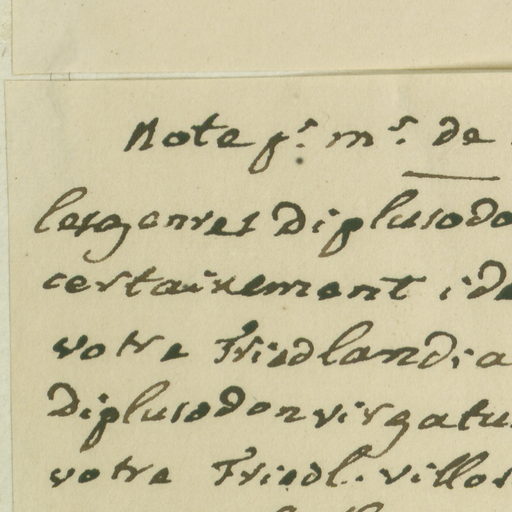 Note pr. mr. de
les genres Diplusodo
certainement ide
votre Friedlandia
Diplusodon virgatu
votre Friedl. villos